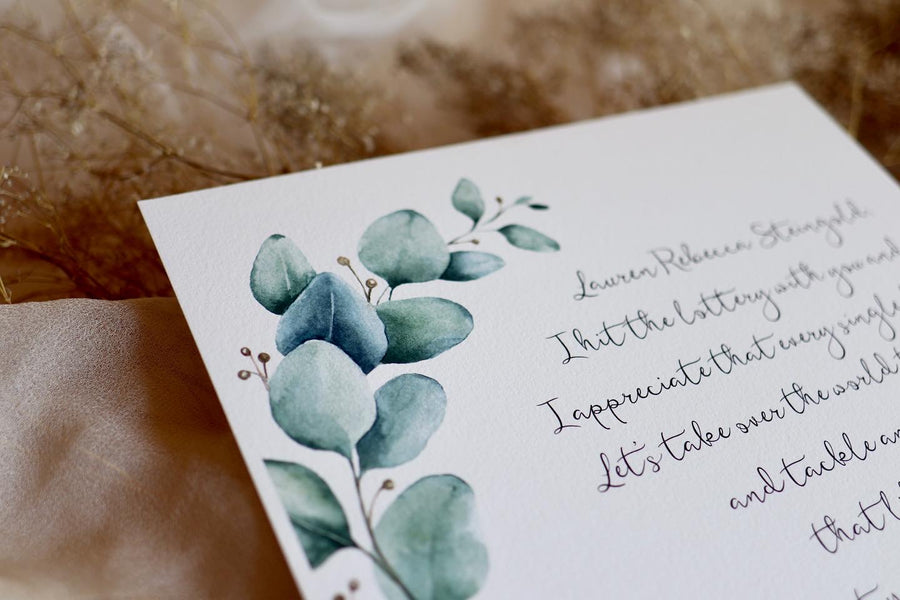 Lauren Rebecca Steingold
I hit the lottery with you and
I appreciate that every single
Let's take over the world
and tackle
that